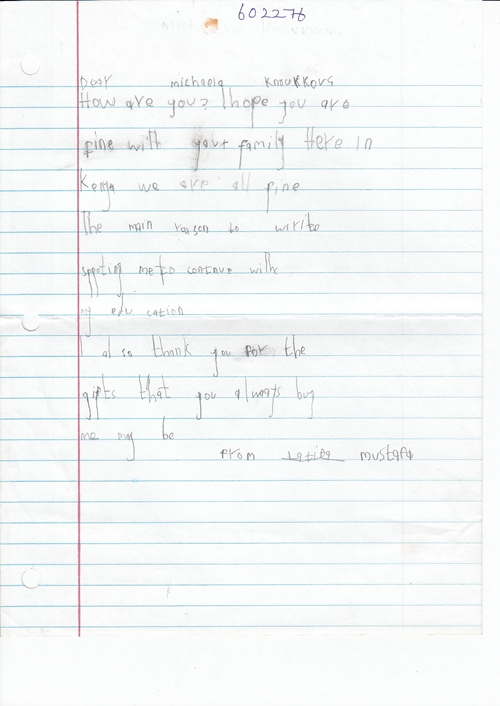 602276
Dear michaela
How are you? I hope you are
fine with your family Here in
Kenya we are all fine
The main reason to write
me to continue with
my edu cation
I also thank you for the
gifts that you always buy
me my be
From mustafa